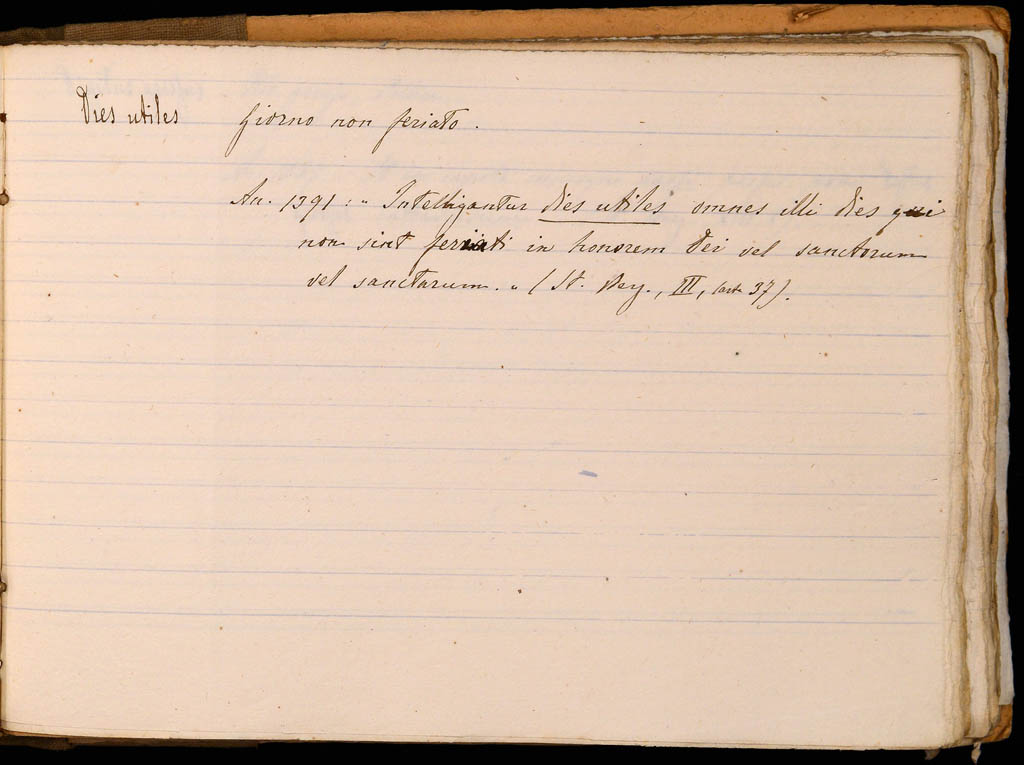 Dies utiles Giorno non feriato.
An. 1391: " Intelligantur dies utiles omnes illi dies qui
non sint feriati in honorem Dei vel sanctorum
vel sanctarum. " ( St. , III, cart. 37).